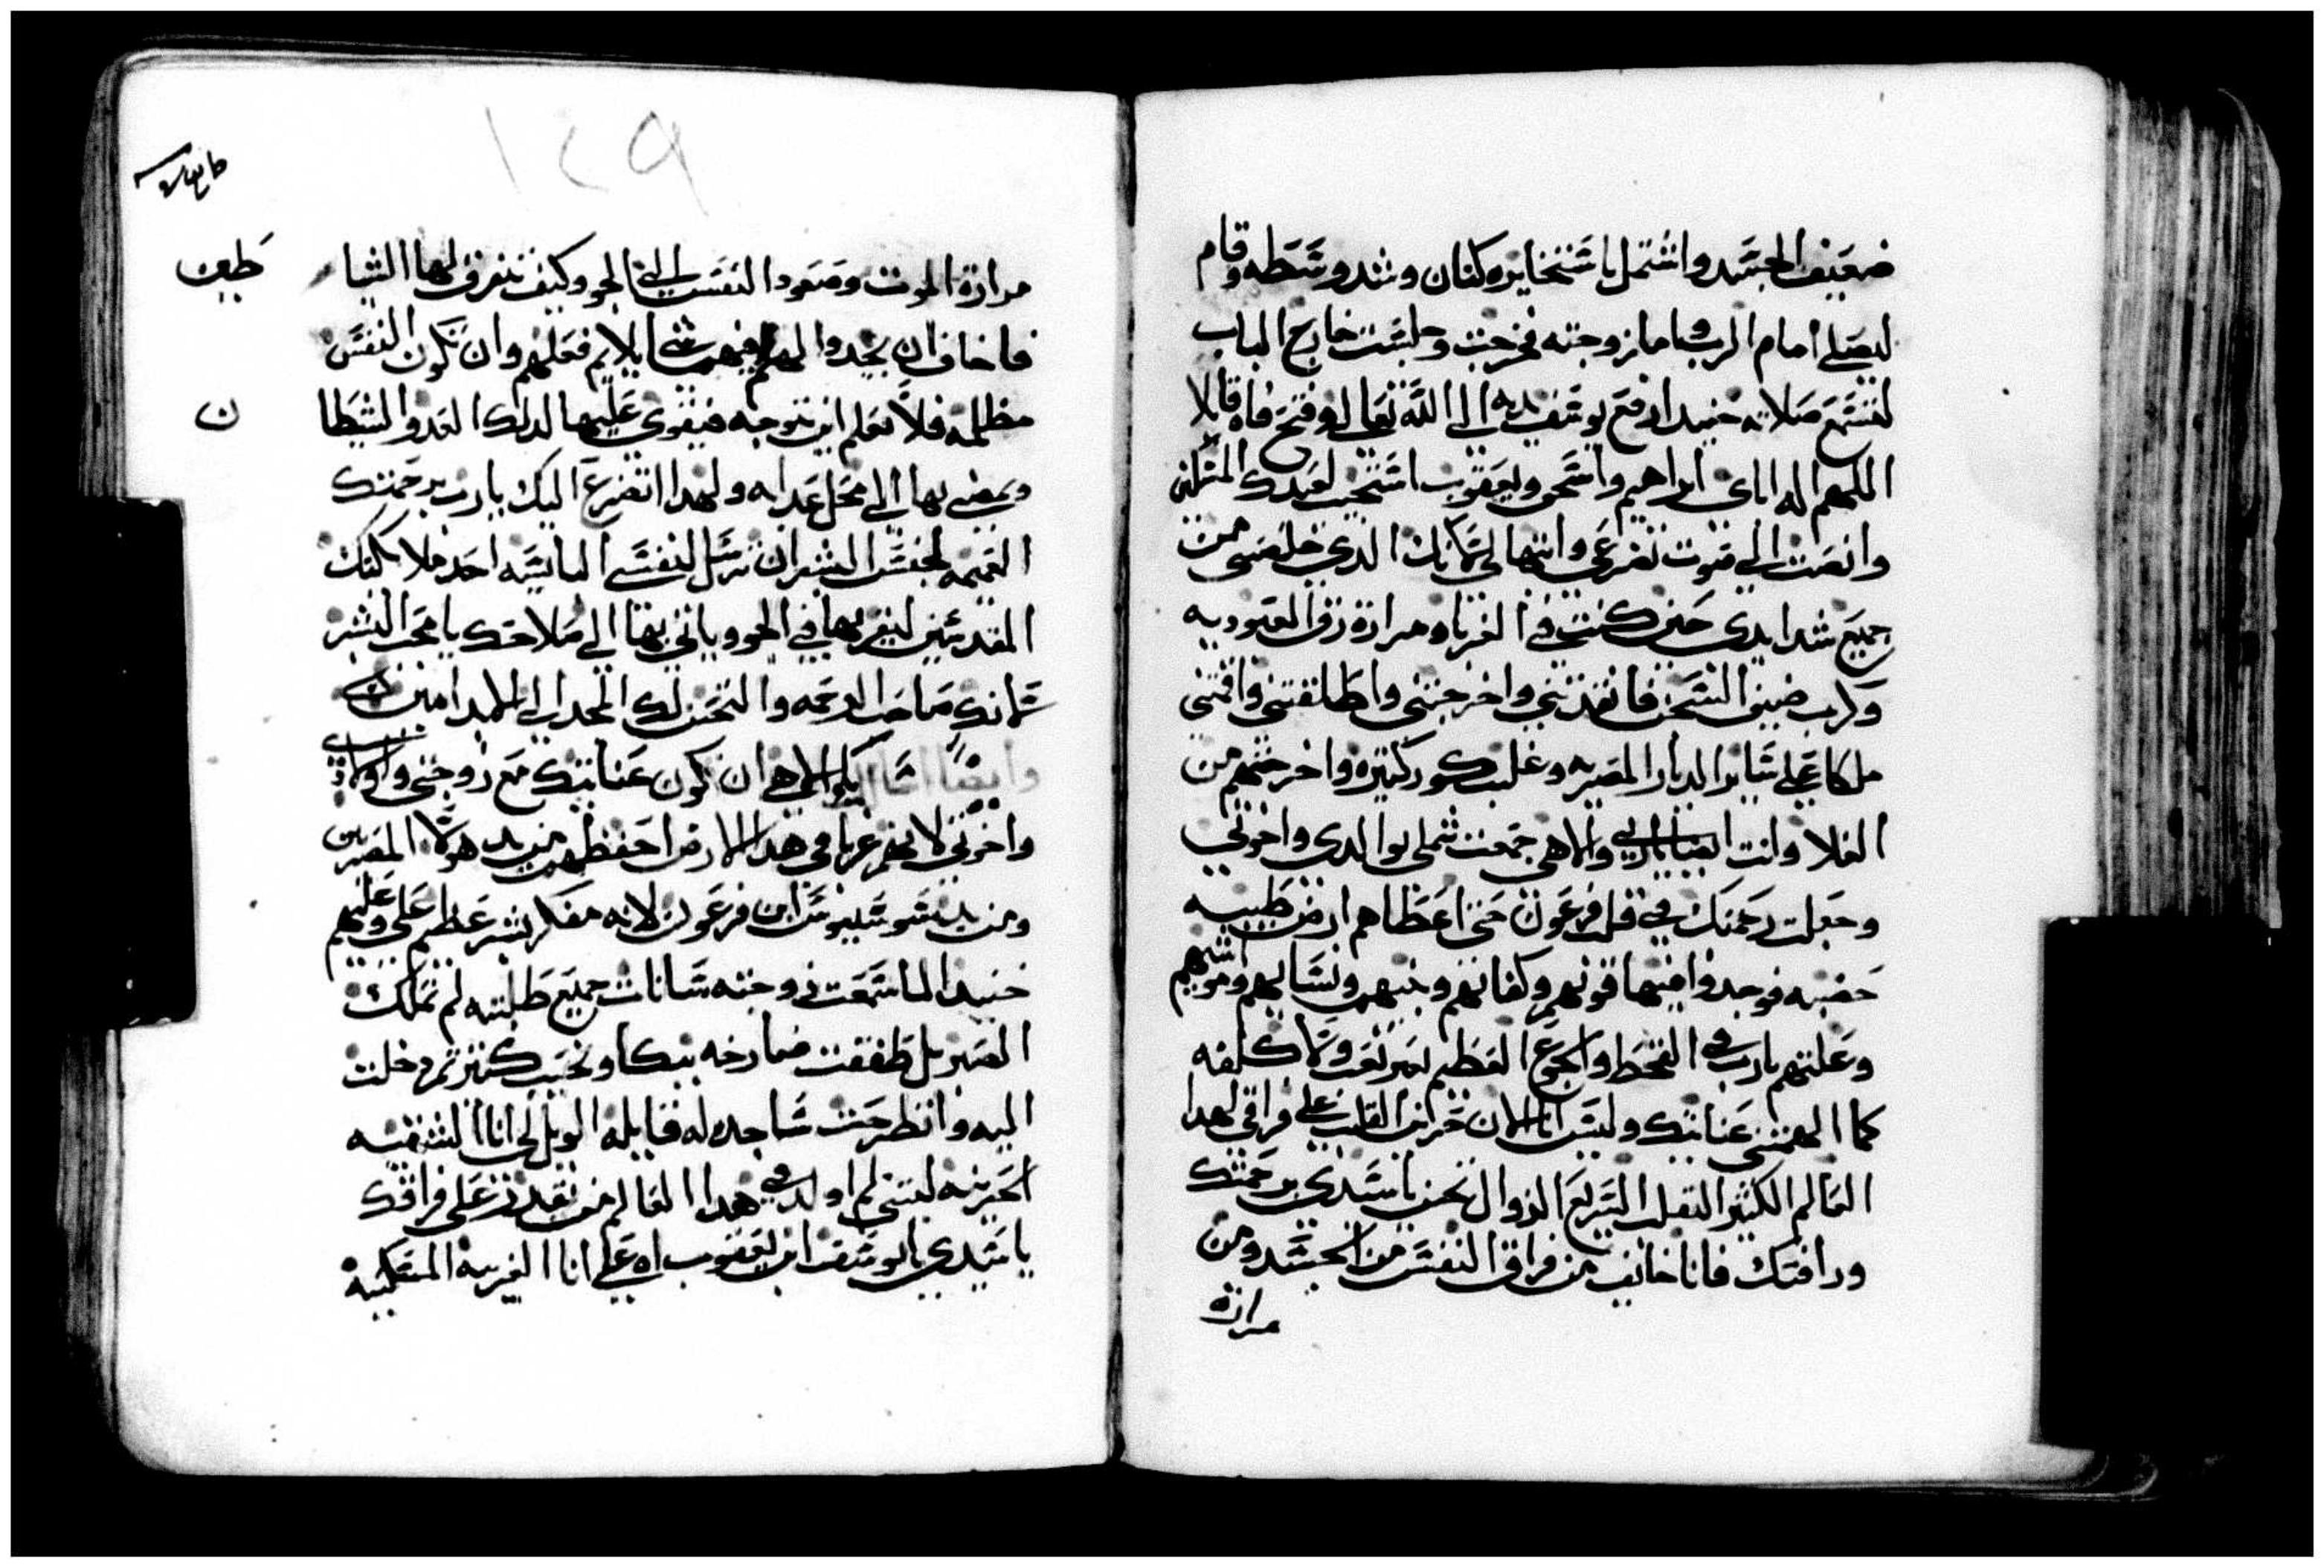 ضعيف الجسد واشتمل باشتخايره كتان وشد وسطه وقام
ليصلي امام الرب واما زوجته فخرجت وجلست خارج الباب
لتسمع صلاته حنيد ارفع يوسف يديه الى الله تعالى وفتح فاه قايلا
اللهم اله اباي ابراهيم واسحق ويعقوب استجيب لعبدك
وانصت الى صوت تضرعي وابتهالي لانك الدي خلصني من
جميع شدايدي حين كنت في الغربا ومرارة رق العبوديه
وكرب ضيق السجن فانقدتني واخرجتني واطلقتني واقمتني
ملكا على ساير الديار المصريه وغلبت كور كتيره واخرجتهم من
الغلا وانت ايضا ياربي والاهي جمعت شملي بوالدي واخوتي
وجعلت رحمتك في قلب فرعون حتى اعطاهم ارض طيبه
خصبه فوجدوا فيها قوتهم وكفاتهم وبنيهم ونسايهم ومواشيهم
وعلتهم يارب في القحط والجوع العظيم بغير تعب ولا كلفه
كما الهمتني عنايتك وليس انا الان حزين القلب على فراقي لهدا
العالم الكثير التقلب السريع الزوال تحنن يا سيدي برحمتك
ورافتك فانا خايف من فراق النفس من الجسد ومن
مرارة
١٤٩
مرارة الموت وصعود النفس الى الجو وكيف تتفرق لها الشيا
طين
فاخاف ان يجدوا لهم فيها شيا يلايم فعلهم وان تكون النفس
مظلمه فلا تعلم اين تتوجه فيقوي عليها لدلك العدو الشيطا
ن
ويمضي بها الى محل عدابه ولهدا اتضرع اليك يارب برحمتك
العميمه لجنس البشر ان ترسل لنفسي البايسه احد ملايكتك
المقدسين ليعبر بها في الجو وياتي بها الى صلاحك يا محب البشر
لانك صاحب الرحمه والتحنن لك المجد الى الابد امين
وايضا اسالك يا الاهي ان تكون عنايتك مع زوجتي واولادي
واخوتي لانهم غربا في هدا الارض احفظهم من يد هولاء المصريين
ومن يد ابن فرعون لانه مفكر بشر عظيم علي وعليهم
حنيد لما سمعت زوجته سانات جميع طلبته لم تملك
الصبر بل طفقت صارخه ببكا ونحيب كتير ثم دخلت
اليه وانطرحت ساجده له قايله الويل لي انا الشقيه
الحزينه ليتني لم اولد في هدا العالم من يقدر على فراقك
يا سيدي يا يوسف ابن يعقوب اه علي انا الغريبه المسكينه